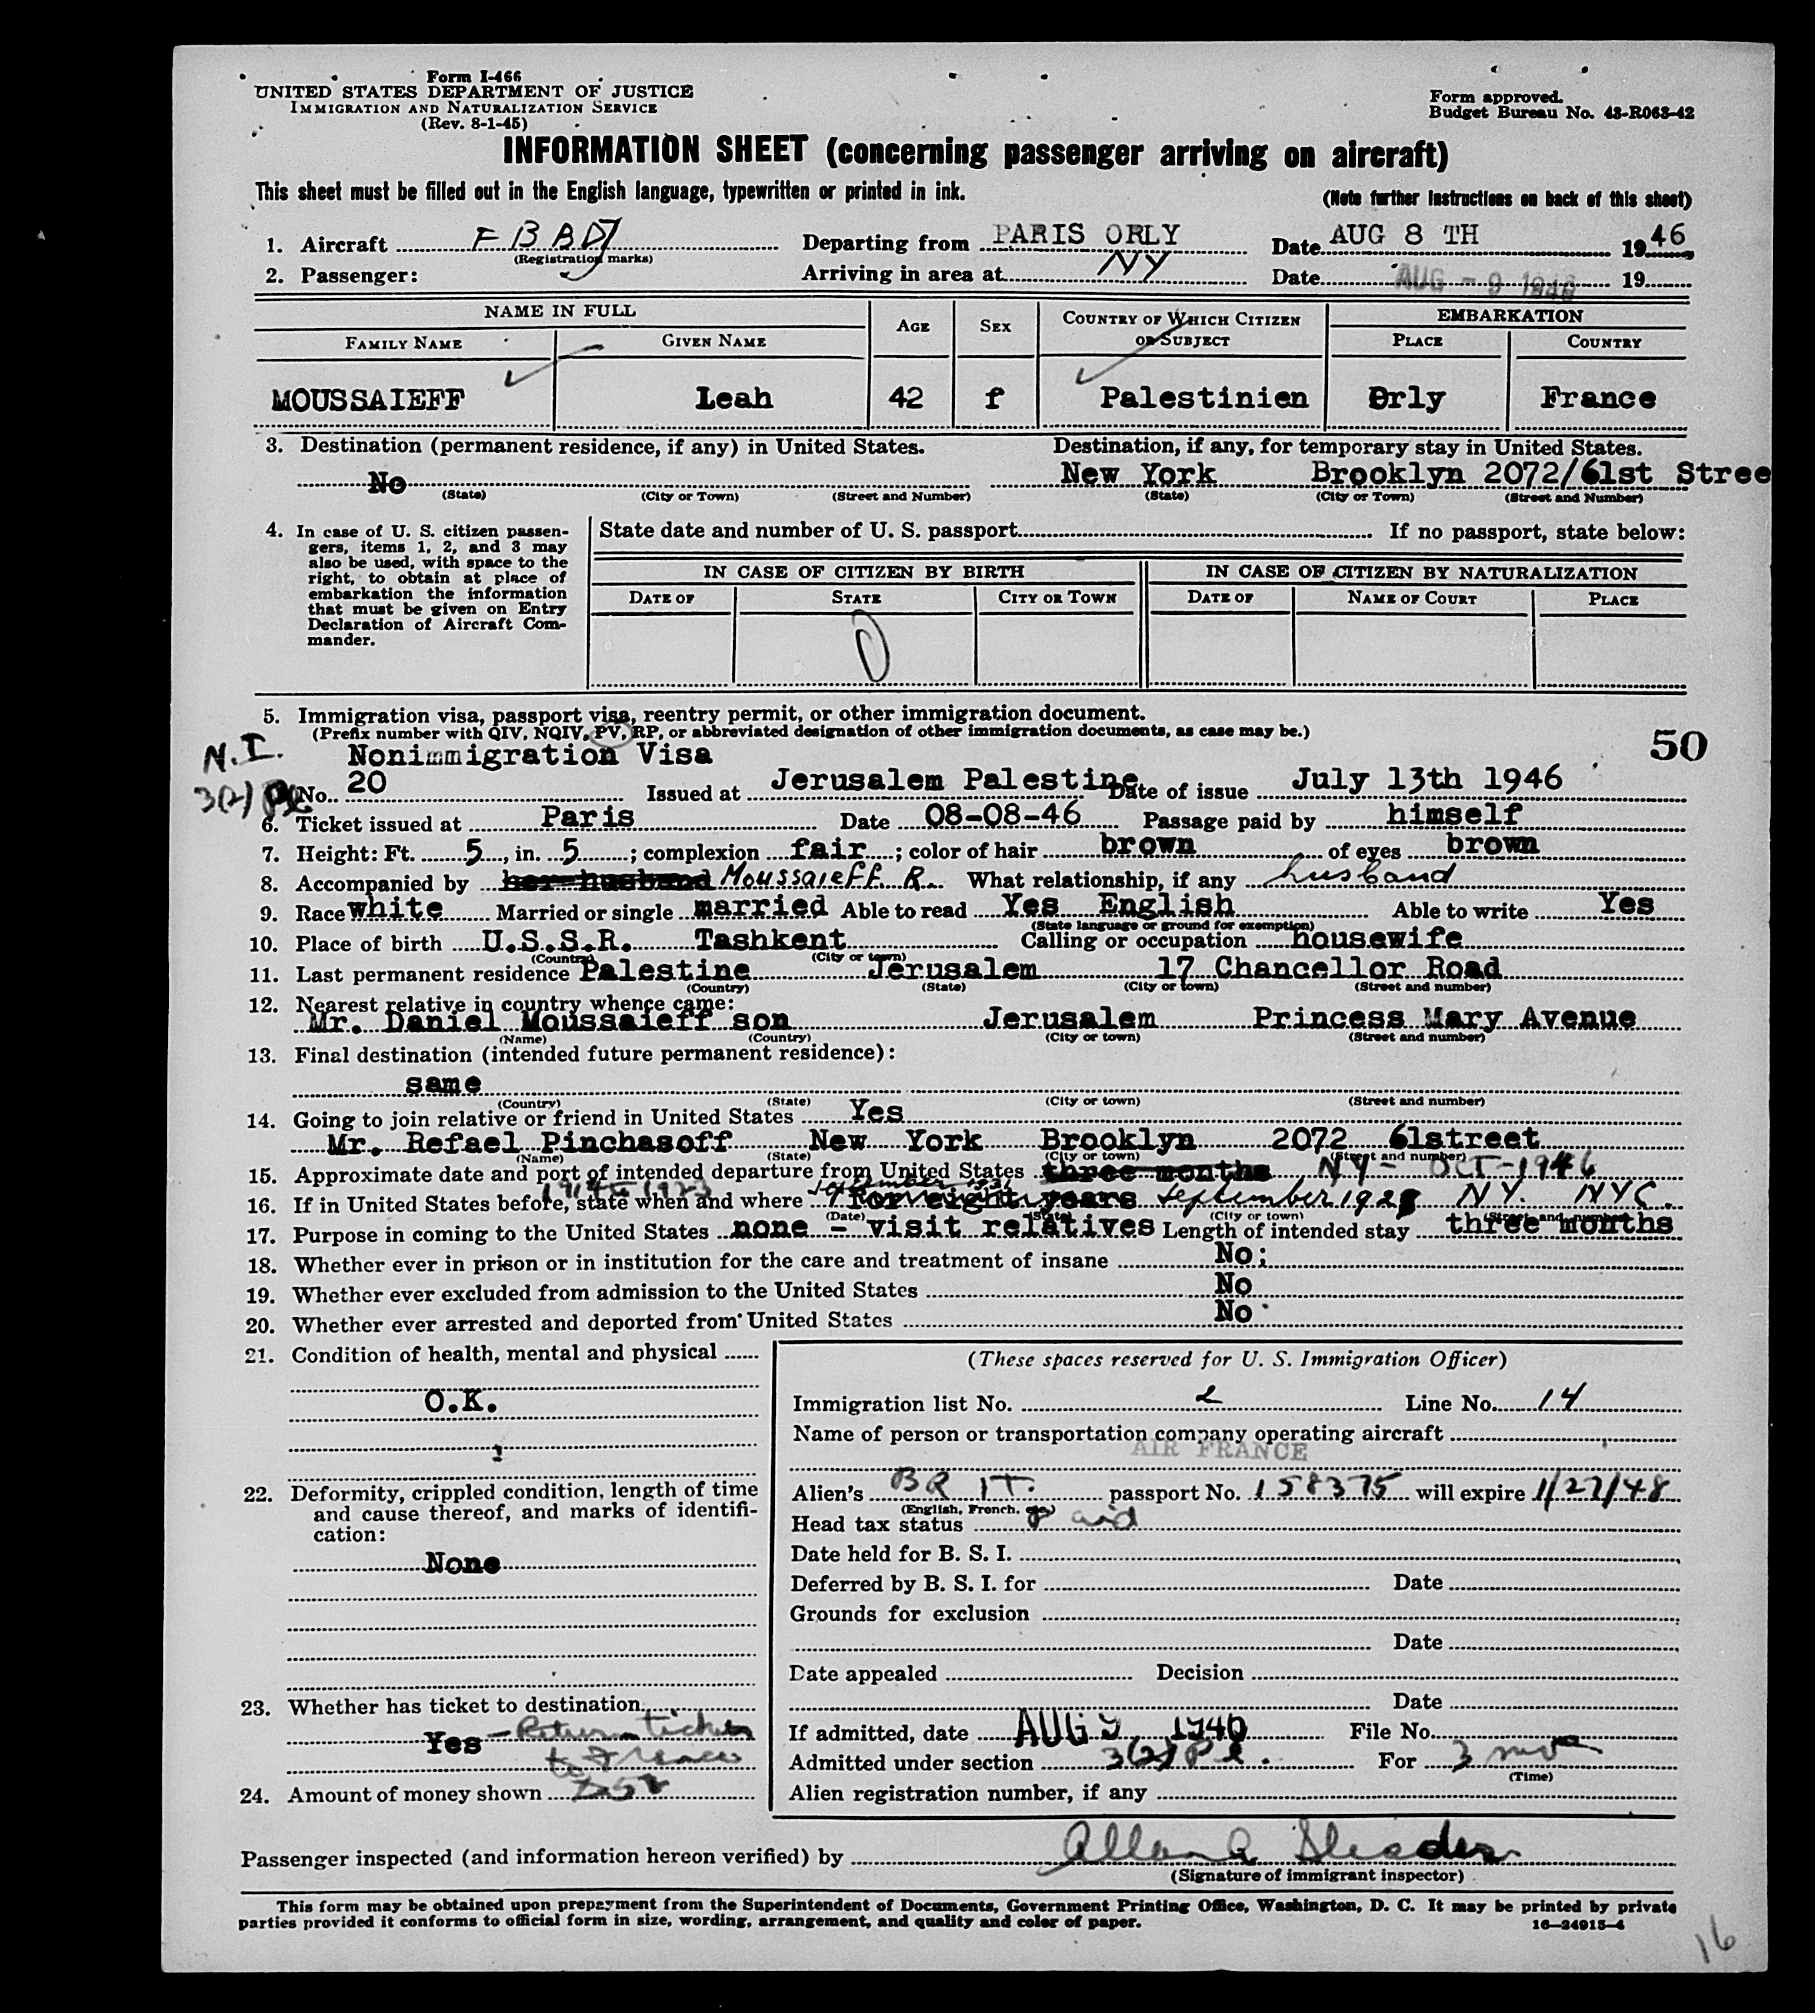 Form I-466
UNITED STATES DEPARTMENT OF JUSTICE
IMMIGRATION AND NATURALIZATION SERVICE
(Rev. 8-1-45)
Form approved.
Budget Bureau No. 43-R063-42
INFORMATION SHEET (concerning passenger arriving on aircraft)
This sheet must be filled out in the English language, typewritten or printed in ink.
(Note further instructions on back of this sheet)
1. Aircraft F B A D J Departing from PARIS ORLY Date AUG 8 TH 1946
(Registration marks)
2. Passenger: Arriving in area at NY Date AUG - 9 1946 19
NAME IN FULL AGE SEX COUNTRY OF WHICH CITIZEN OR SUBJECT EMBARKATION
FAMILY NAME GIVEN NAME PLACE COUNTRY
MOUSSAIEFF Leah 42 f Palestinien Orly France
3. Destination (permanent residence, if any) in United States. Destination, if any, for temporary stay in United States.
No New York Brooklyn 2072/61st Stree
(State) (City or Town) (Street and Number) (State) (City or Town) (Street and Number)
4. In case of U. S. citizen passen-
gers, items 1, 2, and 3 may
also be used, with space to the
right, to obtain at place of
embarkation the information
that must be given on Entry
Declaration of Aircraft Com-
mander.
State date and number of U. S. passport If no passport, state below:
IN CASE OF CITIZEN BY BIRTH IN CASE OF CITIZEN BY NATURALIZATION
DATE OF STATE CITY OR TOWN DATE OF NAME OF COURT PLACE
5. Immigration visa, passport visa, reentry permit, or other immigration document.
(Prefix number with QIV, NQIV, PV, RP, or abbreviated designation of other immigration documents, as case may be.)
N.I. Nonimmigration Visa 50
3(2) No. 20 Issued at Jerusalem Palestine Date of issue July 13th 1946
6. Ticket issued at Paris Date 08-08-46 Passage paid by himself
7. Height: Ft. 5, in. 5; complexion fair; color of hair brown of eyes brown
8. Accompanied by her husband Moussaieff R. What relationship, if any husband
9. Race white Married or single married Able to read Yes English Able to write Yes
(State language or ground for exemption)
10. Place of birth U.S.S.R. Tashkent Calling or occupation housewife
(Country) (City or town)
11. Last permanent residence Palestine Jerusalem 17 Chancellor Road
(Country) (State) (City or town) (Street and number)
12. Nearest relative in country whence came:
Mr. Daniel Moussaieff son Jerusalem Princess Mary Avenue
(Name) (Country) (City or town) (Street and number)
13. Final destination (intended future permanent residence):
same
(Country) (State) (City or town) (Street and number)
14. Going to join relative or friend in United States Yes
Mr. Refael Pinchasoff New York Brooklyn 2072 61street
(Name) (State) (City or town) (Street and number)
15. Approximate date and port of intended departure from United States three months NY - OCT-1946
16. If in United States before, state when and where for eight years September NY. NYC.
(Date) (State) (City or town) (Street and number)
17. Purpose in coming to the United States none - visit relatives Length of intended stay three months
18. Whether ever in prison or in institution for the care and treatment of insane No;
19. Whether ever excluded from admission to the United States No
20. Whether ever arrested and deported from United States No
21. Condition of health, mental and physical
O.K.
22. Deformity, crippled condition, length of time
and cause thereof, and marks of identifi-
cation:
None
23. Whether has ticket to destination
Yes - Return ticket
to France
24. Amount of money shown
(These spaces reserved for U. S. Immigration Officer)
Immigration list No. 2 Line No. 14
Name of person or transportation company operating aircraft
AIR FRANCE
Alien's BRIT. passport No. 158375 will expire 1/27/48
(English, French, etc.)
Head tax status paid
Date held for B. S. I.
Deferred by B. S. I. for Date
Grounds for exclusion
Date
Date appealed Decision
Date
If admitted, date AUG 9 1946 File No.
Admitted under section 3(2) For 3 mos
(Time)
Alien registration number, if any
Passenger inspected (and information hereon verified) by
(Signature of immigrant inspector)
This form may be obtained upon prepayment from the Superintendent of Documents, Government Printing Office, Washington, D. C. It may be printed by private
parties provided it conforms to official form in size, wording, arrangement, and quality and color of paper. 16-24915-4
16